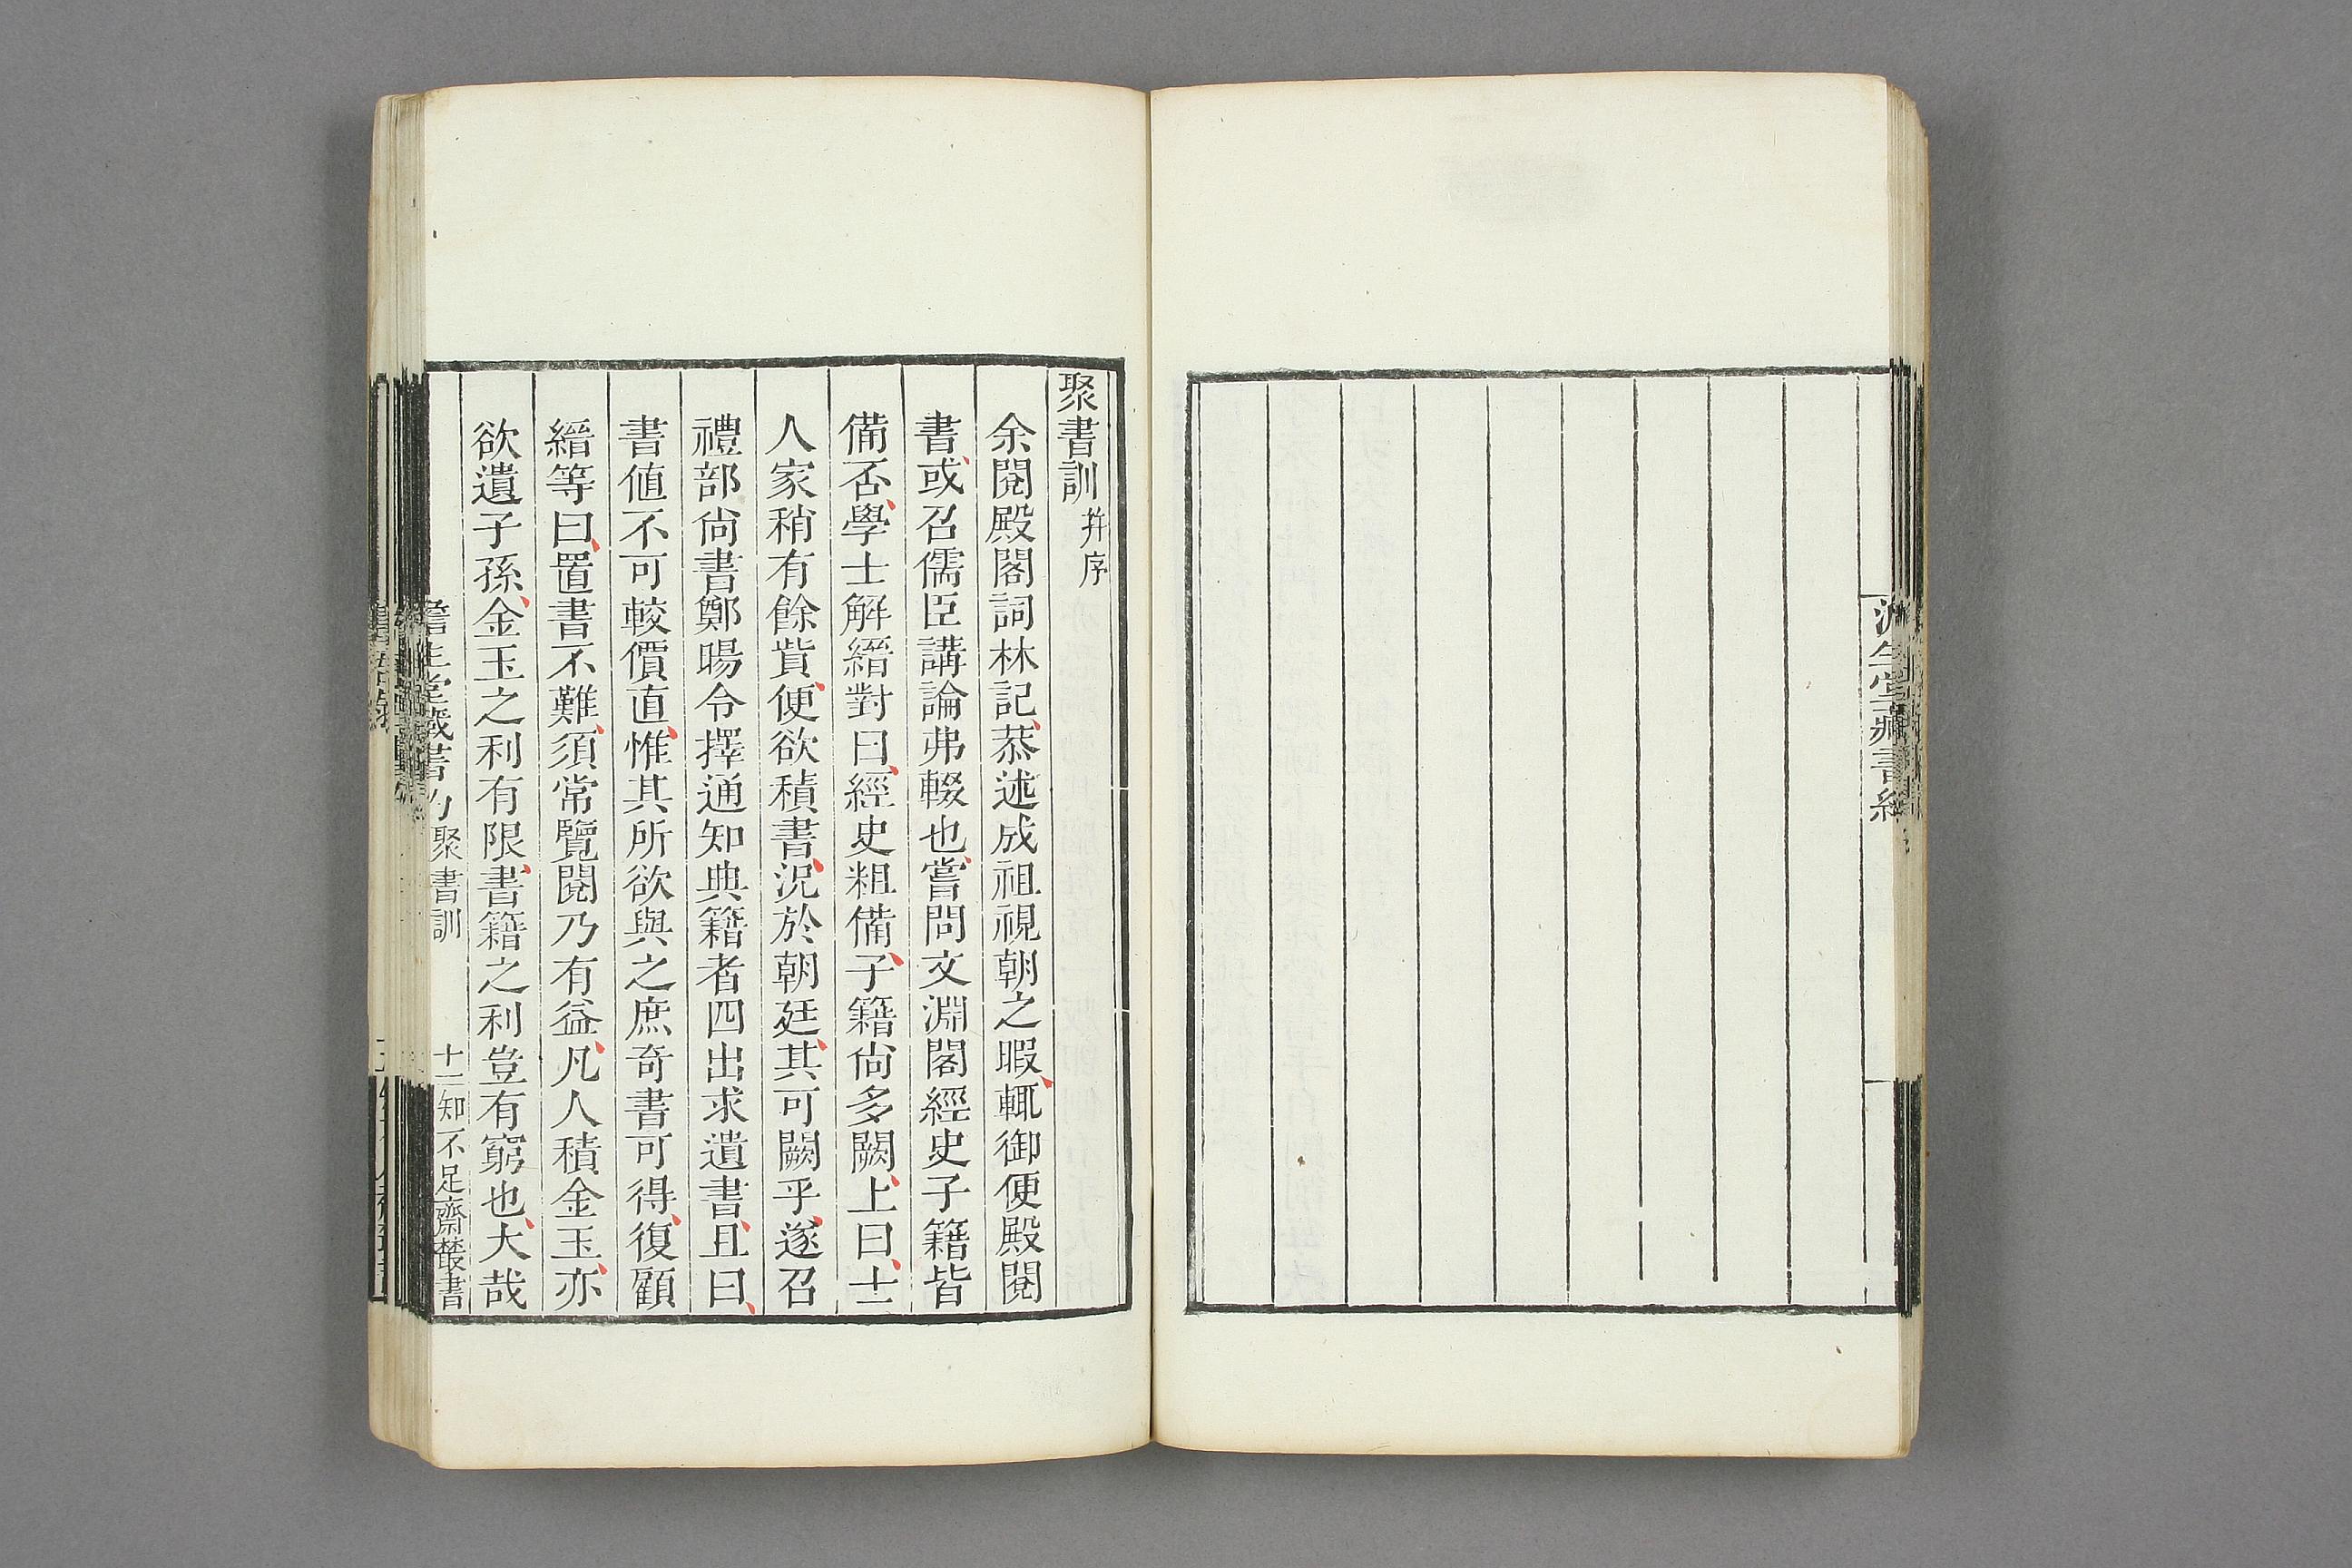 聚書訓 并序
余閱殿閣詞林記恭述成祖視朝之暇輒御便殿閱
書或召儒臣講論弗輟也嘗問文淵閣經史子籍皆
備否學士解縉對曰經史粗備子籍尚多闕上曰士
人家稍有餘貲便欲積書況於朝廷其可闕乎遂召
禮部尚書鄭賜令擇通知典籍者四出求遺書且曰
書値不可較價直惟其所欲與之庶奇書可得復顧
縉等曰置書不難須常覽閱乃有益凡人積金玉亦
欲遺子孫金玉之利有限書籍之利豈有窮也大哉
澹生堂藏書約 聚書訓 十一 知不足齋叢書
生堂藏書約